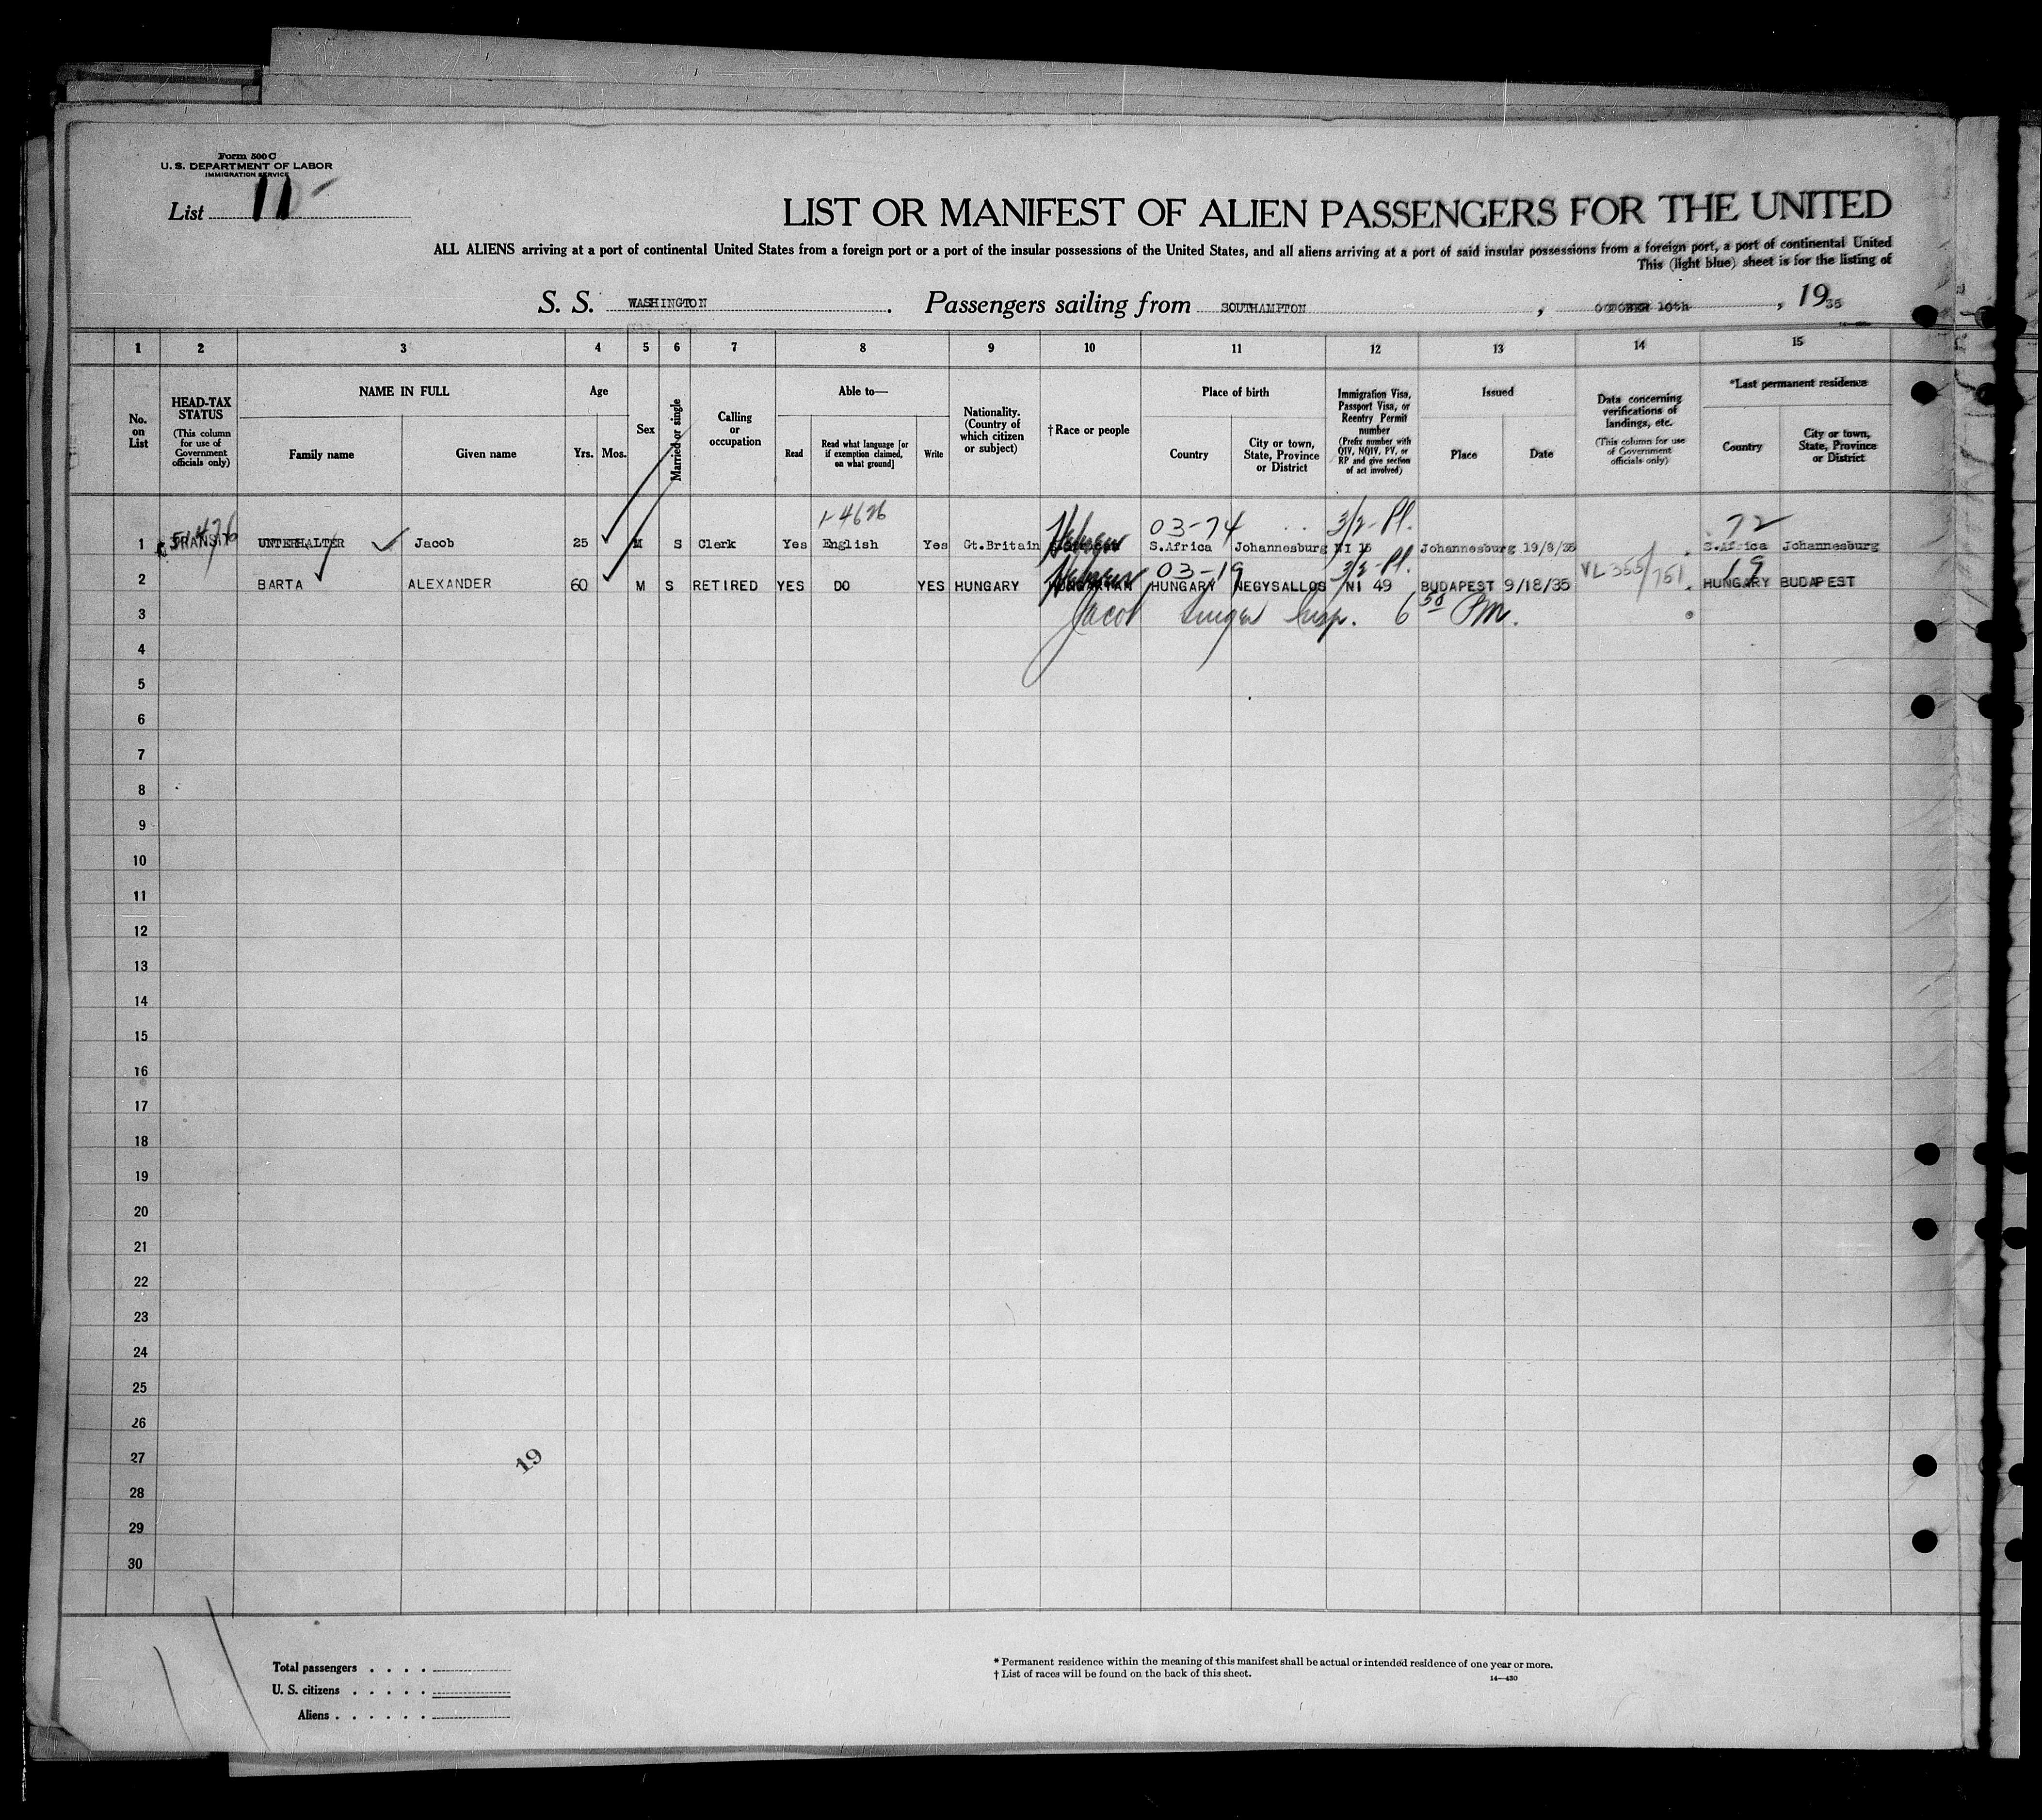 Form 500 C
U. S. DEPARTMENT OF LABOR
IMMIGRATION SERVICE
List 11
LIST OR MANIFEST OF ALIEN PASSENGERS FOR THE UNITED
ALL ALIENS arriving at a port of continental United States from a foreign port or a port of the insular possessions of the United States, and all aliens arriving at a port of said insular possessions from a foreign port, a port of continental United
This (light blue) sheet is for the listing of
S. S. WASHINGTON. Passengers sailing from SOUTHAMPTON, OCTOBER 10th, 1935
1 2 3 4 5 6 7 8 9 10 11 12 13 14 15
No. on List
HEAD-TAX STATUS (This column for use of Government officials only)
NAME IN FULL
Family name Given name
Age
Yrs. Mos.
Sex
Married or single
Calling or occupation
Able to—
Read
Read what language [or if exemption claimed, on what ground]
Write
Nationality. (Country of which citizen or subject)
†Race or people
Place of birth
Country
City or town, State, Province or District
Immigration Visa, Passport Visa, or Reentry Permit number (Prefix number with QIV, NQIV, PV, or RP and give section of act involved)
Issued
Place Date
Data concerning verifications of landings, etc. (This column for use of Government officials only)
*Last permanent residence
Country
City or town, State, Province or District
03-74 3/2-Pl. 72
1 TRANSIT UNTERHALTER Jacob 25 M S Clerk Yes English Yes Gt.Britain Hebrew S.Africa Johannesburg NI 15 Johannesburg 19/8/35 S.Africa Johannesburg
03-19 3/2-Pl. VL 355/751 19
2 BARTA ALEXANDER 60 M S RETIRED YES DO YES HUNGARY Hebrew HUNGARY NEGYSALLOS NI 49 BUDAPEST 9/18/35 HUNGARY BUDAPEST
3 Jacob Singer Insp. 6 50 PM.
4
5
6
7
8
9
10
11
12
13
14
15
16
17
18
19
20
21
22
23
24
25
26
27
28
29
30
19
Total passengers . . . .
U. S. citizens . . . . .
Aliens . . . . . .
* Permanent residence within the meaning of this manifest shall be actual or intended residence of one year or more.
† List of races will be found on the back of this sheet.
14—430